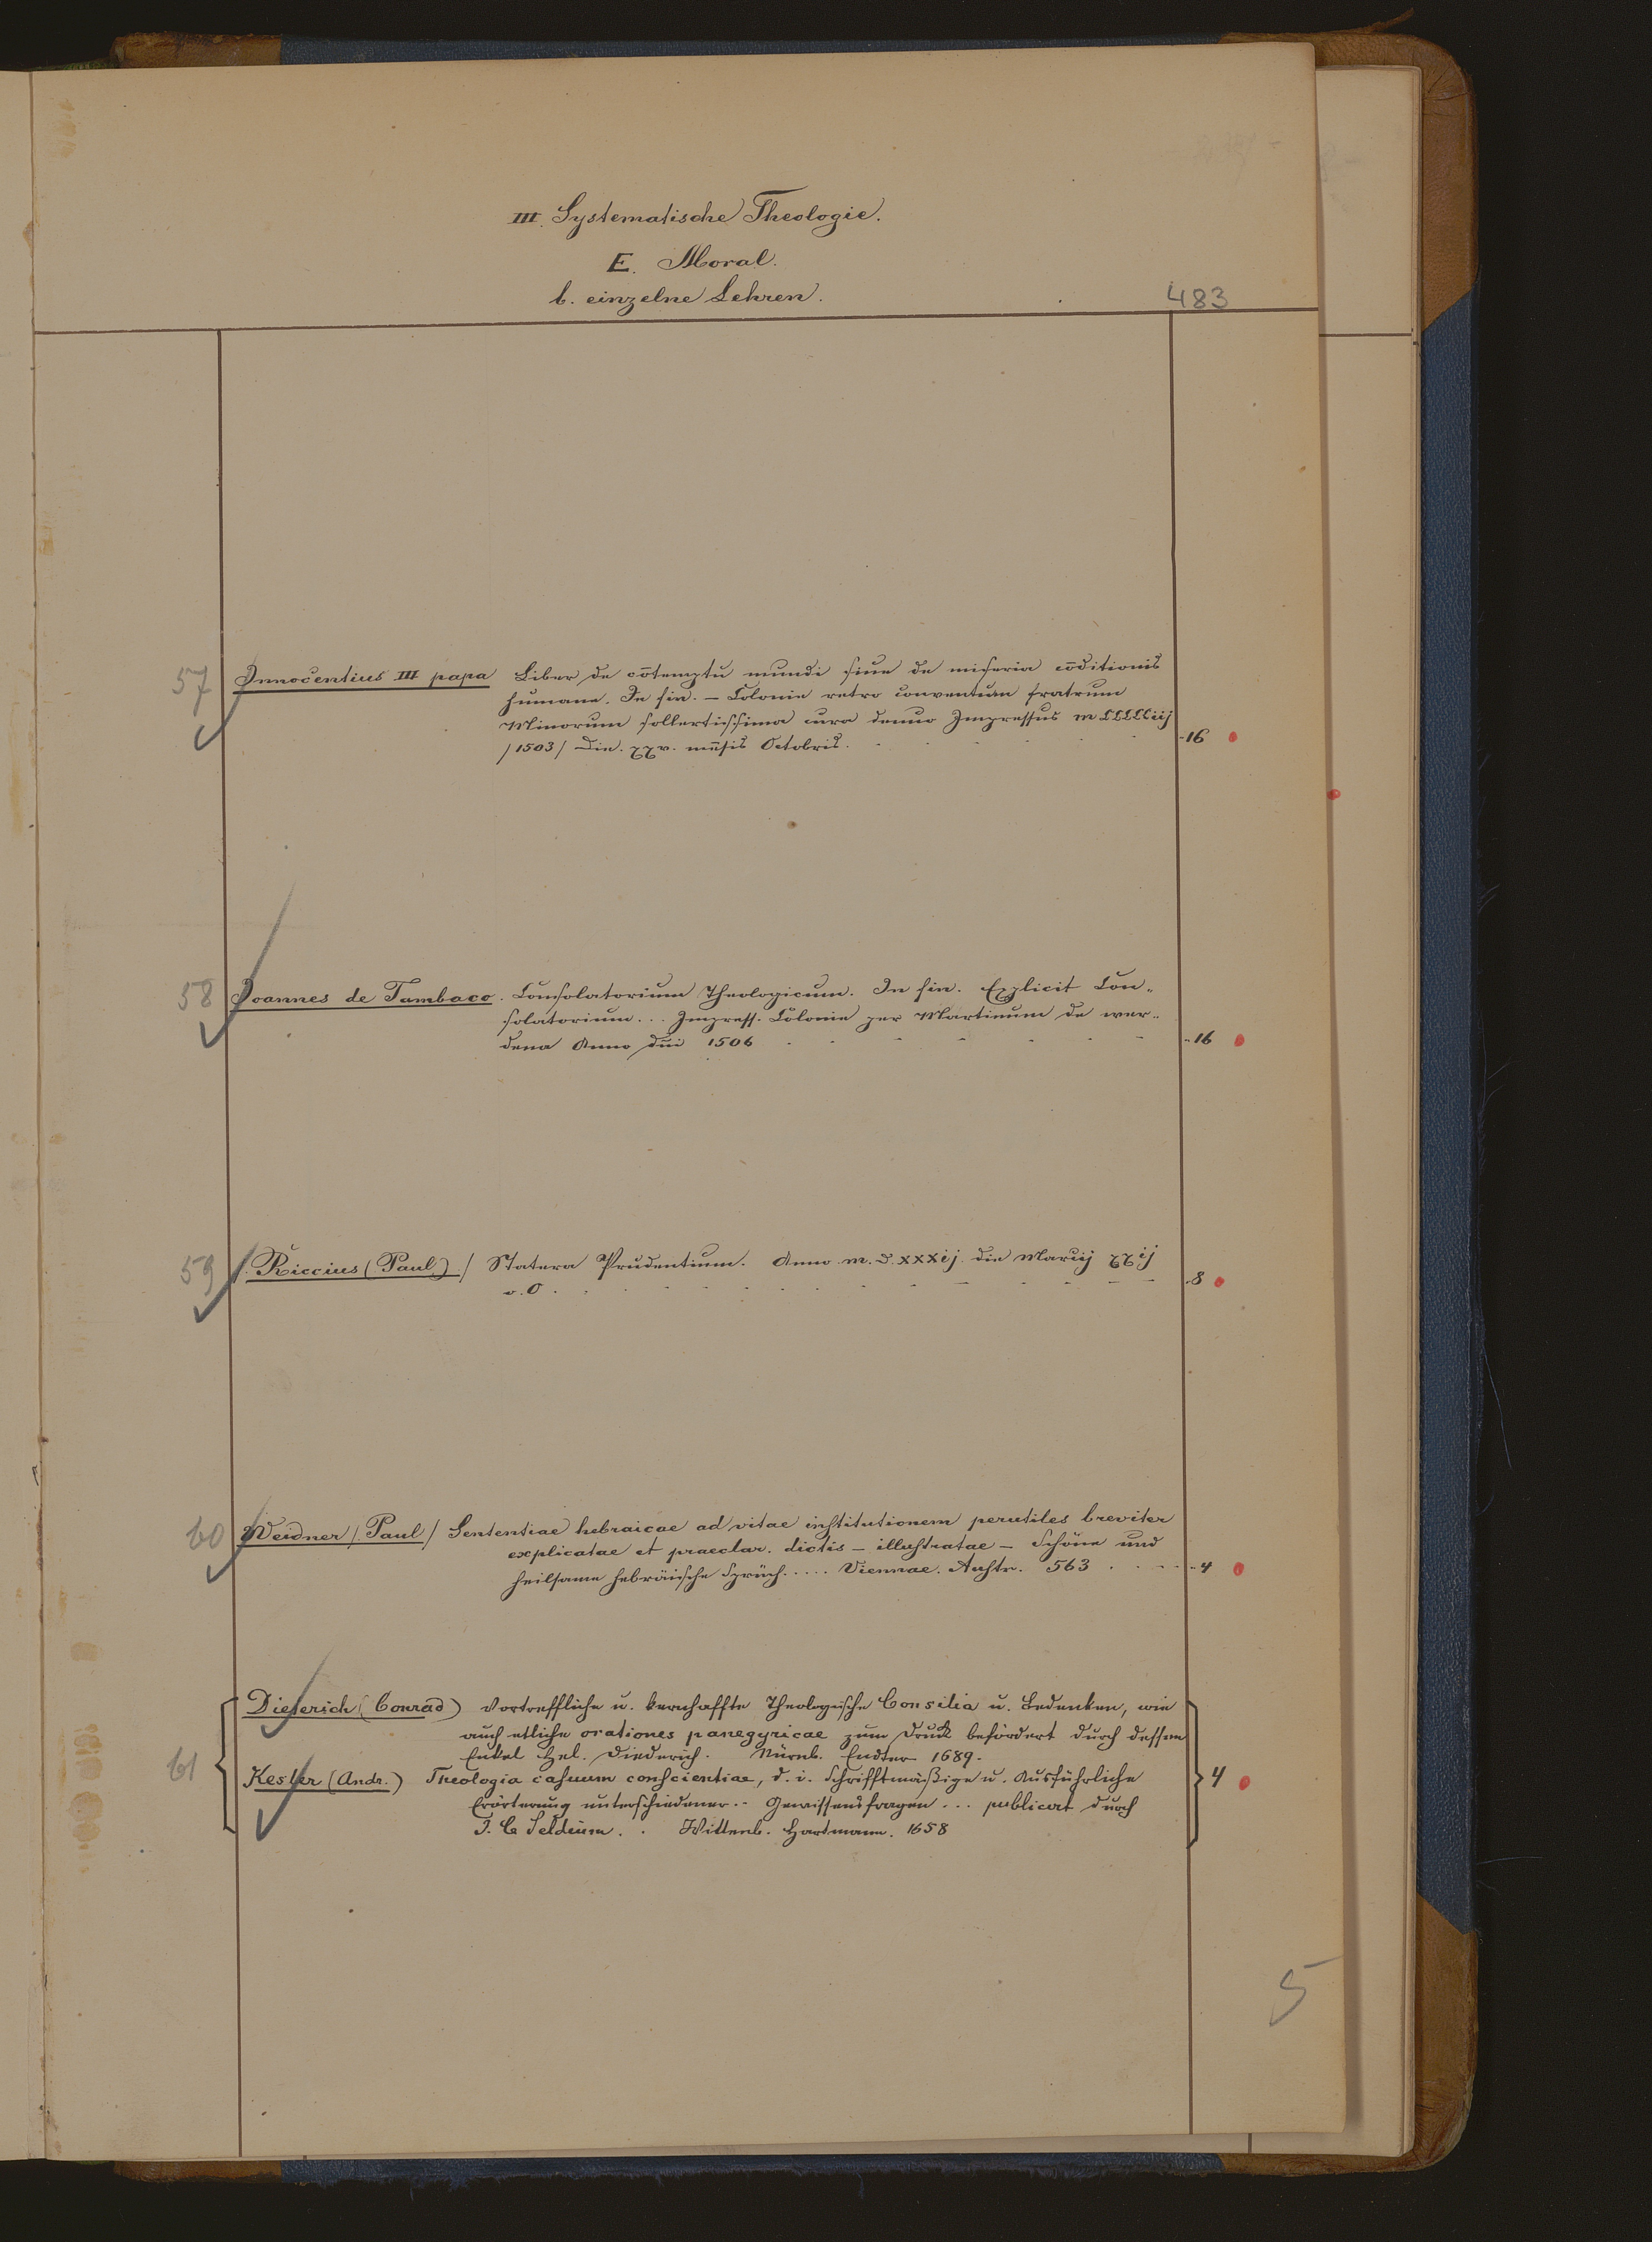 III. Systematische Theologie.
E. Moral.
b. einzelne Lehren.
483
57 Innocentius III papa Liber de cōtemptu mundi siue de miseria cōditionis
humane. In fin. – Colonie retro conventum fratrum
Minorum sollertissima cura denuo Impressus m CCCCCiij
/1503/ Die. xxv. mēsis Octobris. - 16
58 Joannes de Tambaco. Consolatorium Theologicum. In fin. Explicit Con-
solatorium... Impress. Colonie per Martinum de wer-
dena Anno dn̄i 1506 - 16
59 /. Riccius (Paul) ./ Statera Prudentium. Anno. m. D. xxxij. die Marcij xxij
o. O. 8
60 Weidner / Paul / Sententiae hebraicae ad vitae institutionem perutiles breviter
explicatae et praeclar. dictis – illustratae – Schöne und
heilsame hebräische Sprüch..... Viennae. Austr. 563 - 4
61 Dieterich (Conrad) Vortreffliche u. kernhaffte Theologische Consilia u. Bedenken, wie
auch etliche orationes panegyricae zum Druck befördert durch dessen
Enkel Hel. Diederich. Nürnb. Endter 1689.
Kesler (Andr.) Theologia casuum conscientiae, d. i. Schrifftmäßige u. Ausführliche
Erörterung unterschiedener.. Gewissensfragen... publicirt durch
J. C. Seldium.. Wittenb. Hartmann. 1658
4
5